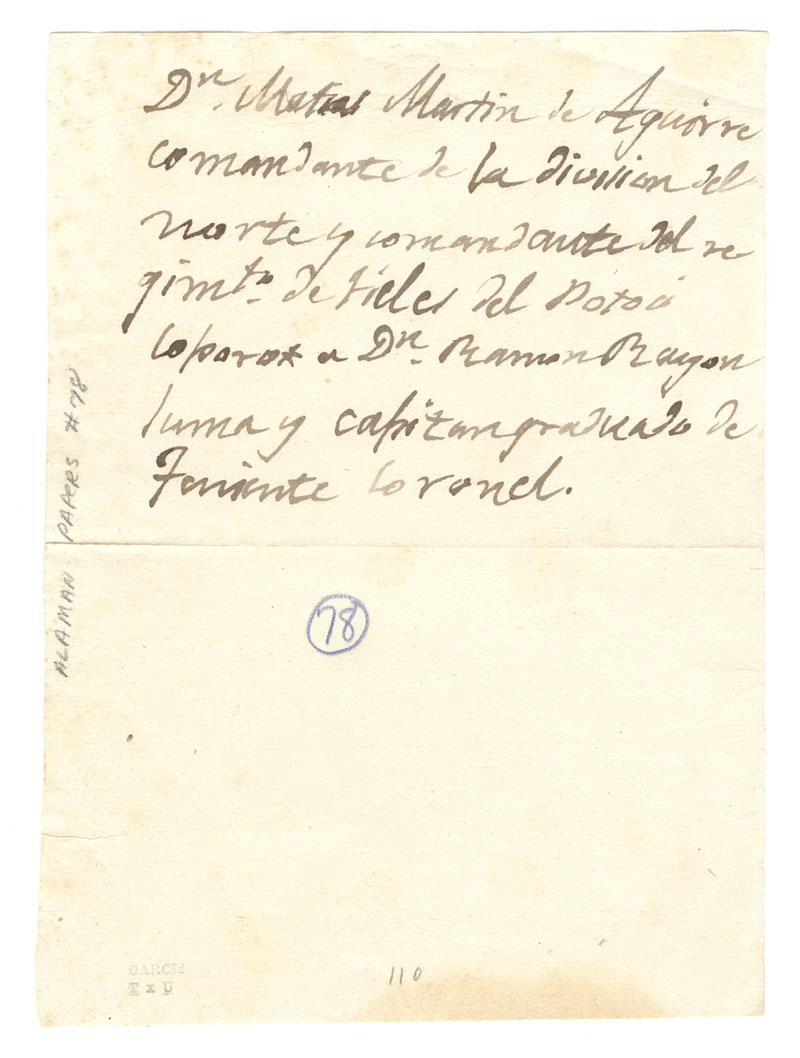 Dn. Matias Martin de Aguirre
comandante de la division del
norte y comandante del re
gimto. de fieles del Potosi
a Dn. Ramon Rayon
y capitan graduado de
Teniente Coronel.
78
ALAMAN PAPERS #78
GARCIA
T x U
110